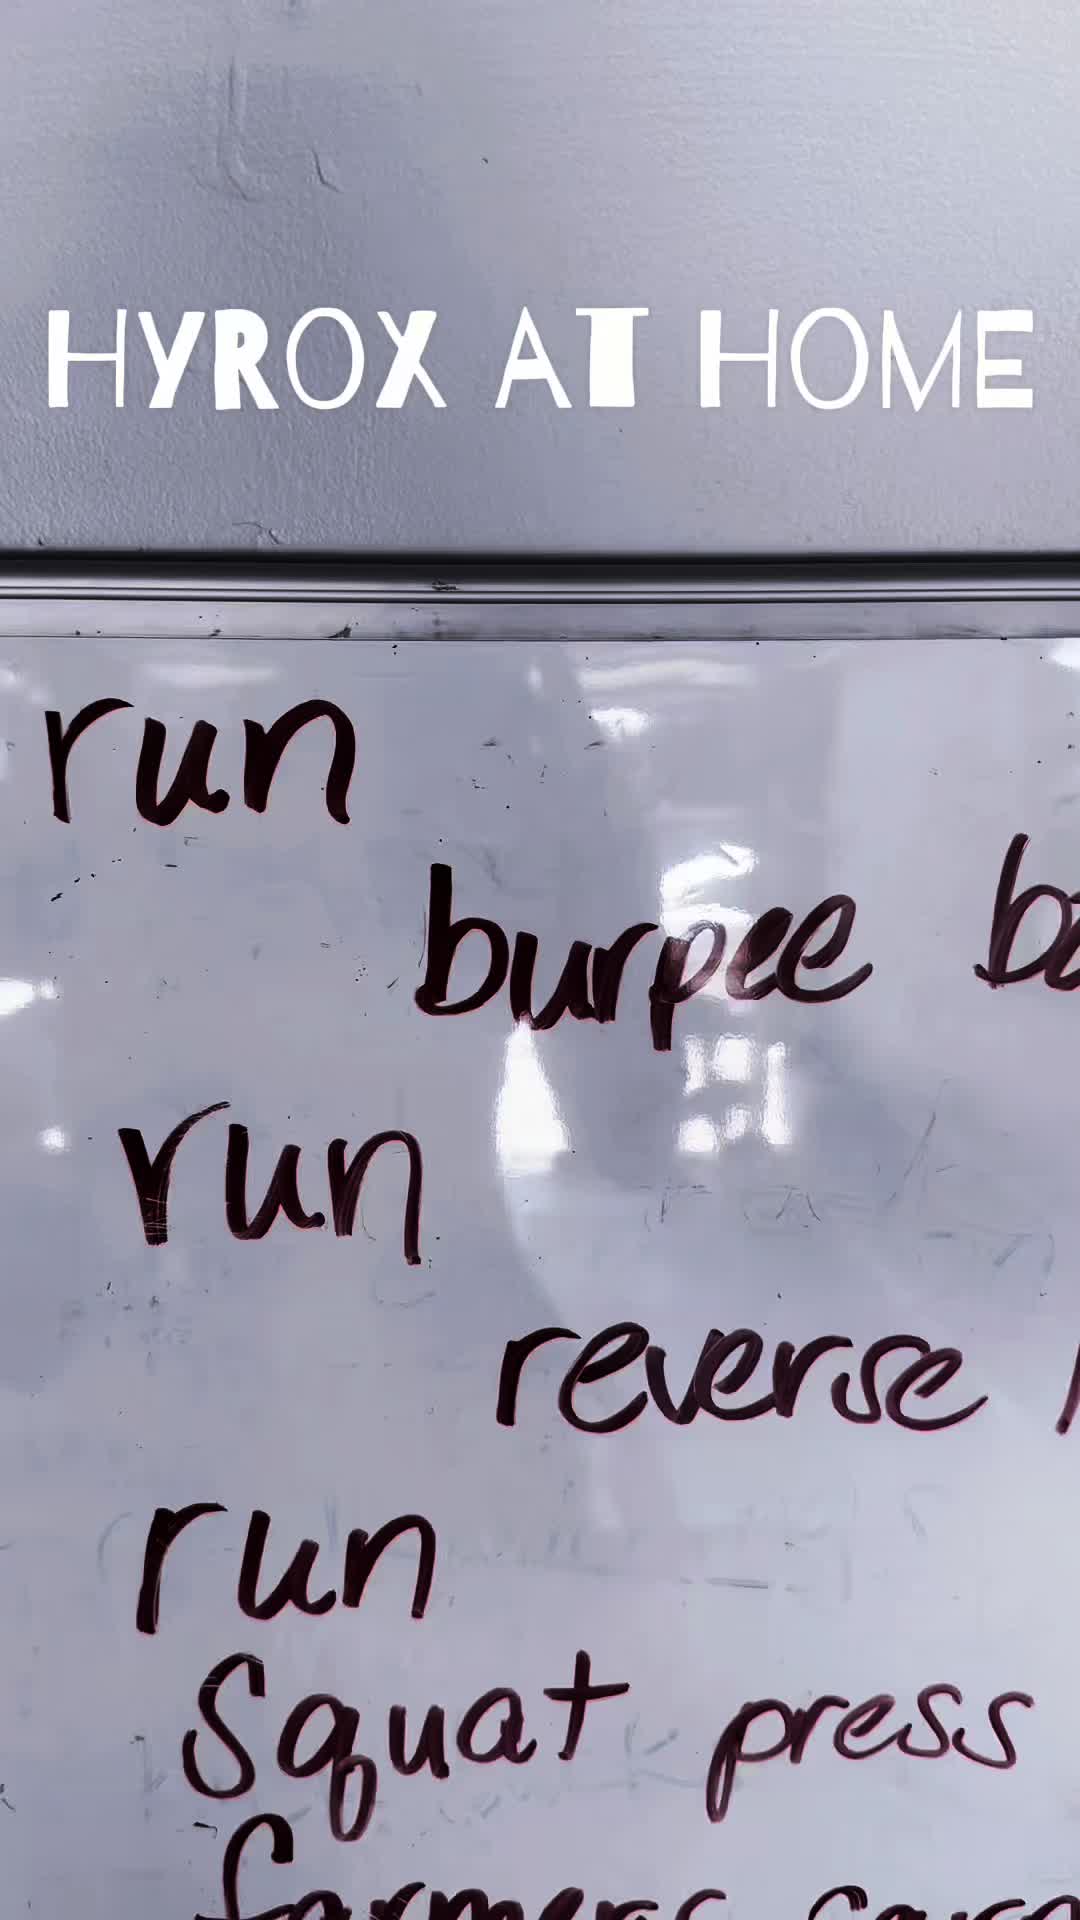 HYROX AT HOME
run
burpee
run
reverse
run
Squat press
farmers